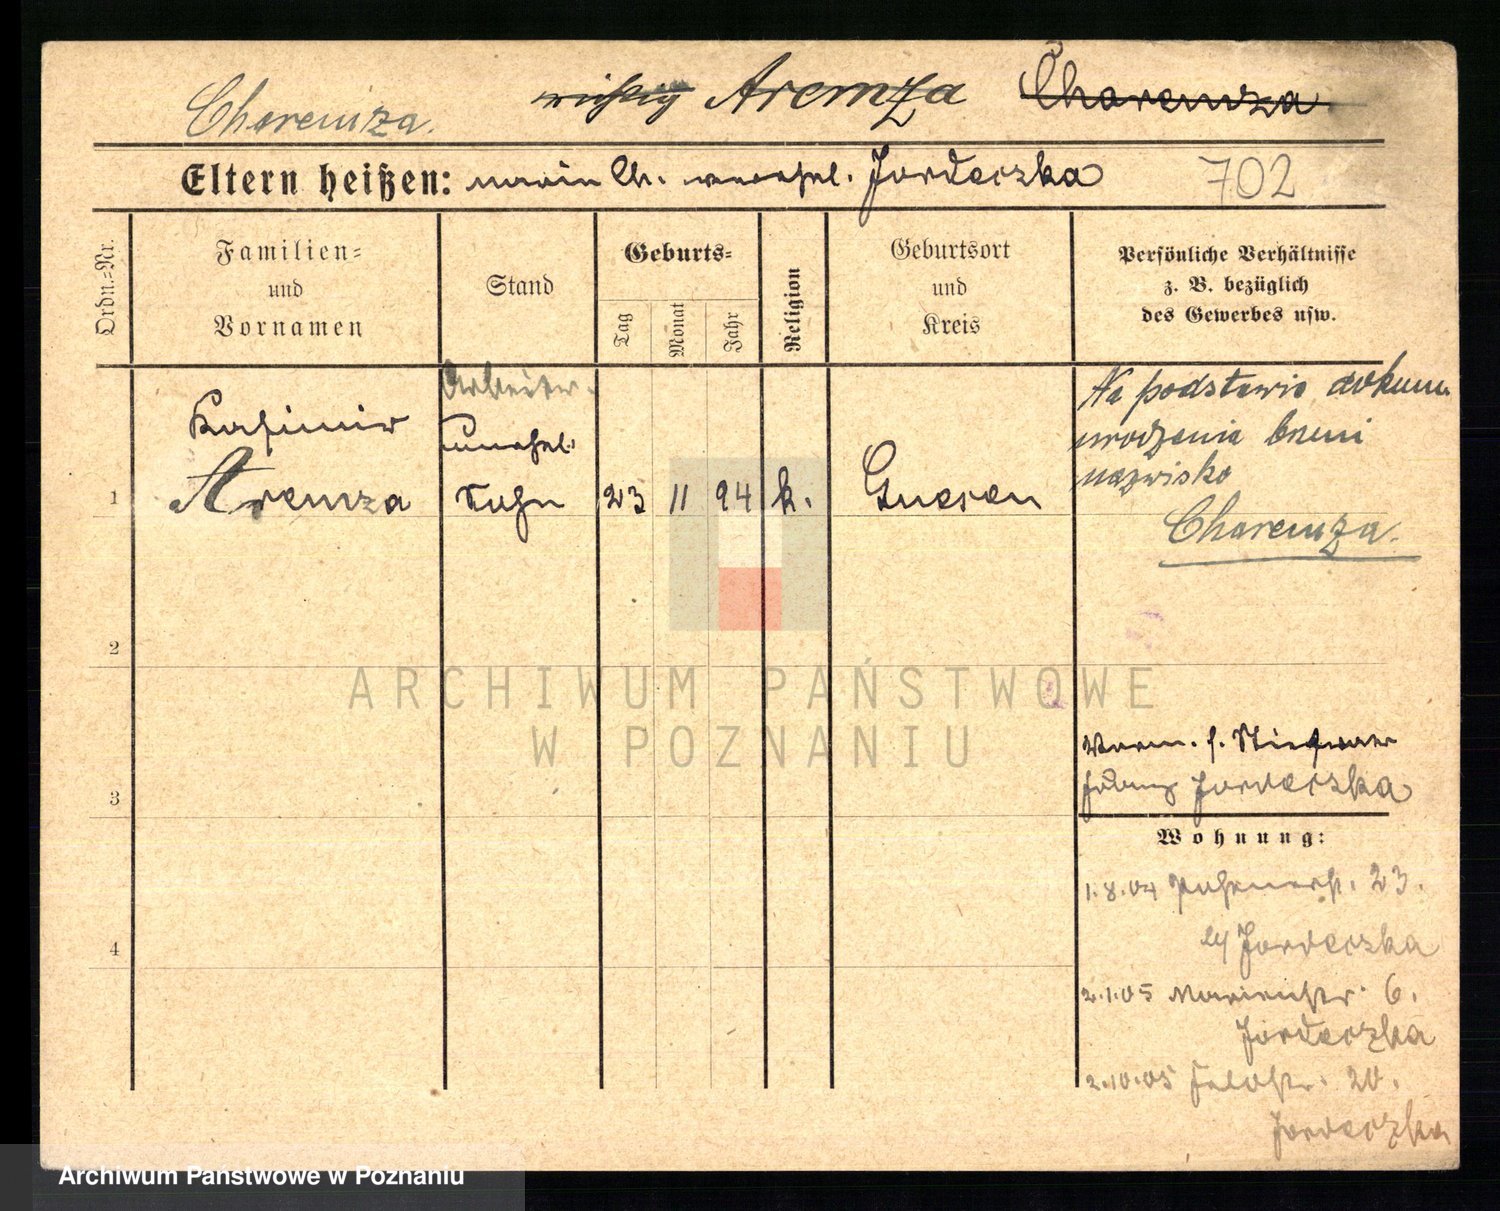 Choremza.
richtig Aremza Choremza.
Eltern heißen: maria Ch. verehel. Jordeczka 702
Ordn.-Nr.
Familien- und Vornamen
Stand
Geburts-
Tag Monat Jahr
Religion
Geburtsort und Kreis
Persönliche Verhältnisse
z. B. bezüglich
des Gewerbes usw.
Arbeiter.
Kasimir unehel.
1 Aremza Sohn 23 11 94 k. Gnesen
Na podstawie dokum.
urodzenia brzmi
nazwisko
Choremza.
2
3
4
ARCHIWUM PAŃSTWOWE
W POZNANIU
Vorm. s. Stiefvater
Franz Jordeczka
Wohnung:
1.8.04 23.
b/ Jordeczka
2.1.05 Marienstr. 6.
Jordeczka
2.10.05 Feldstr. 20.
Jordeczka
Archiwum Państwowe w Poznaniu